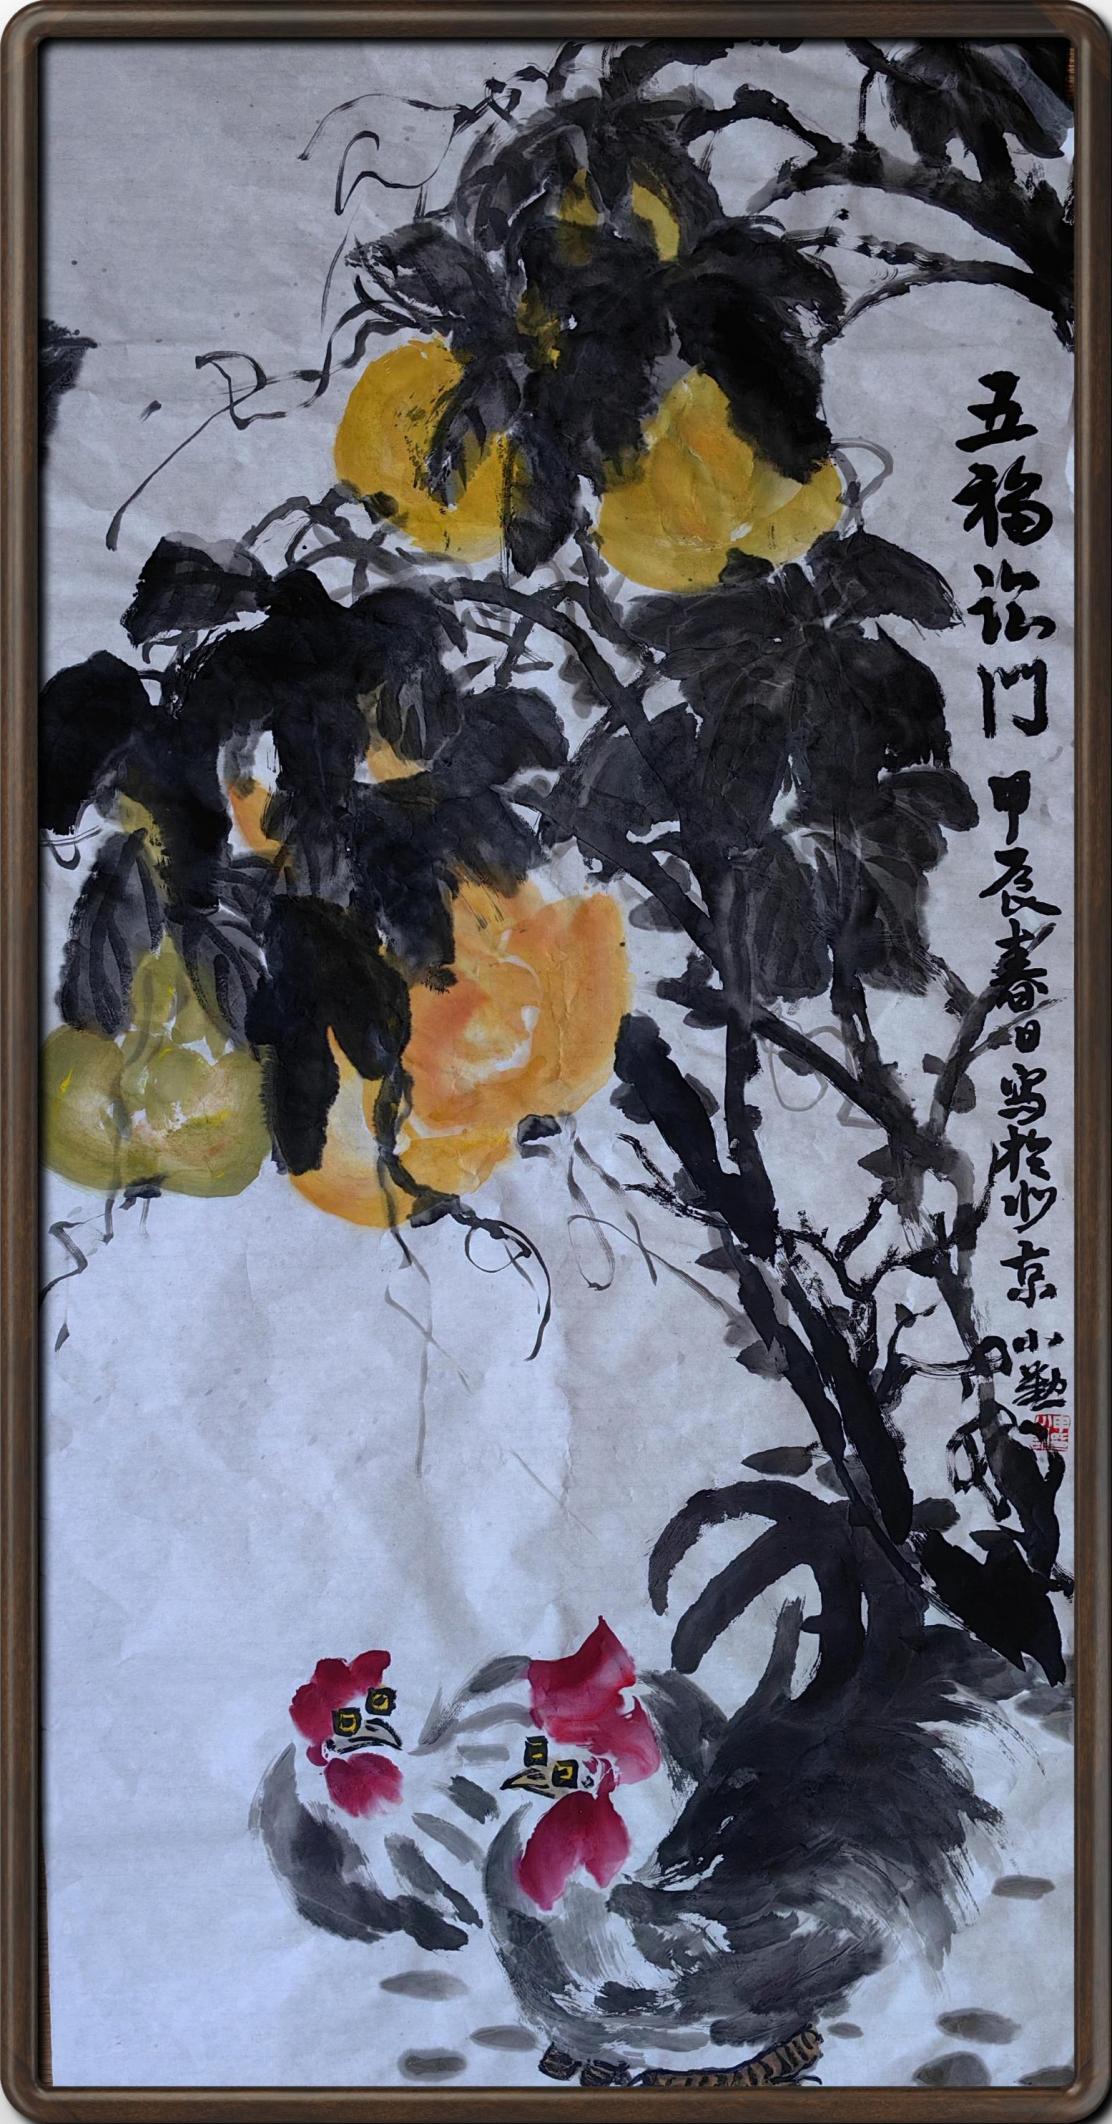 五福临门 甲辰春日写於北京 小勤